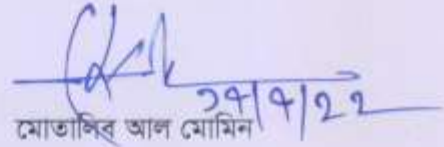 ২৭/৭/২২
মোতালিব আল মোমিন